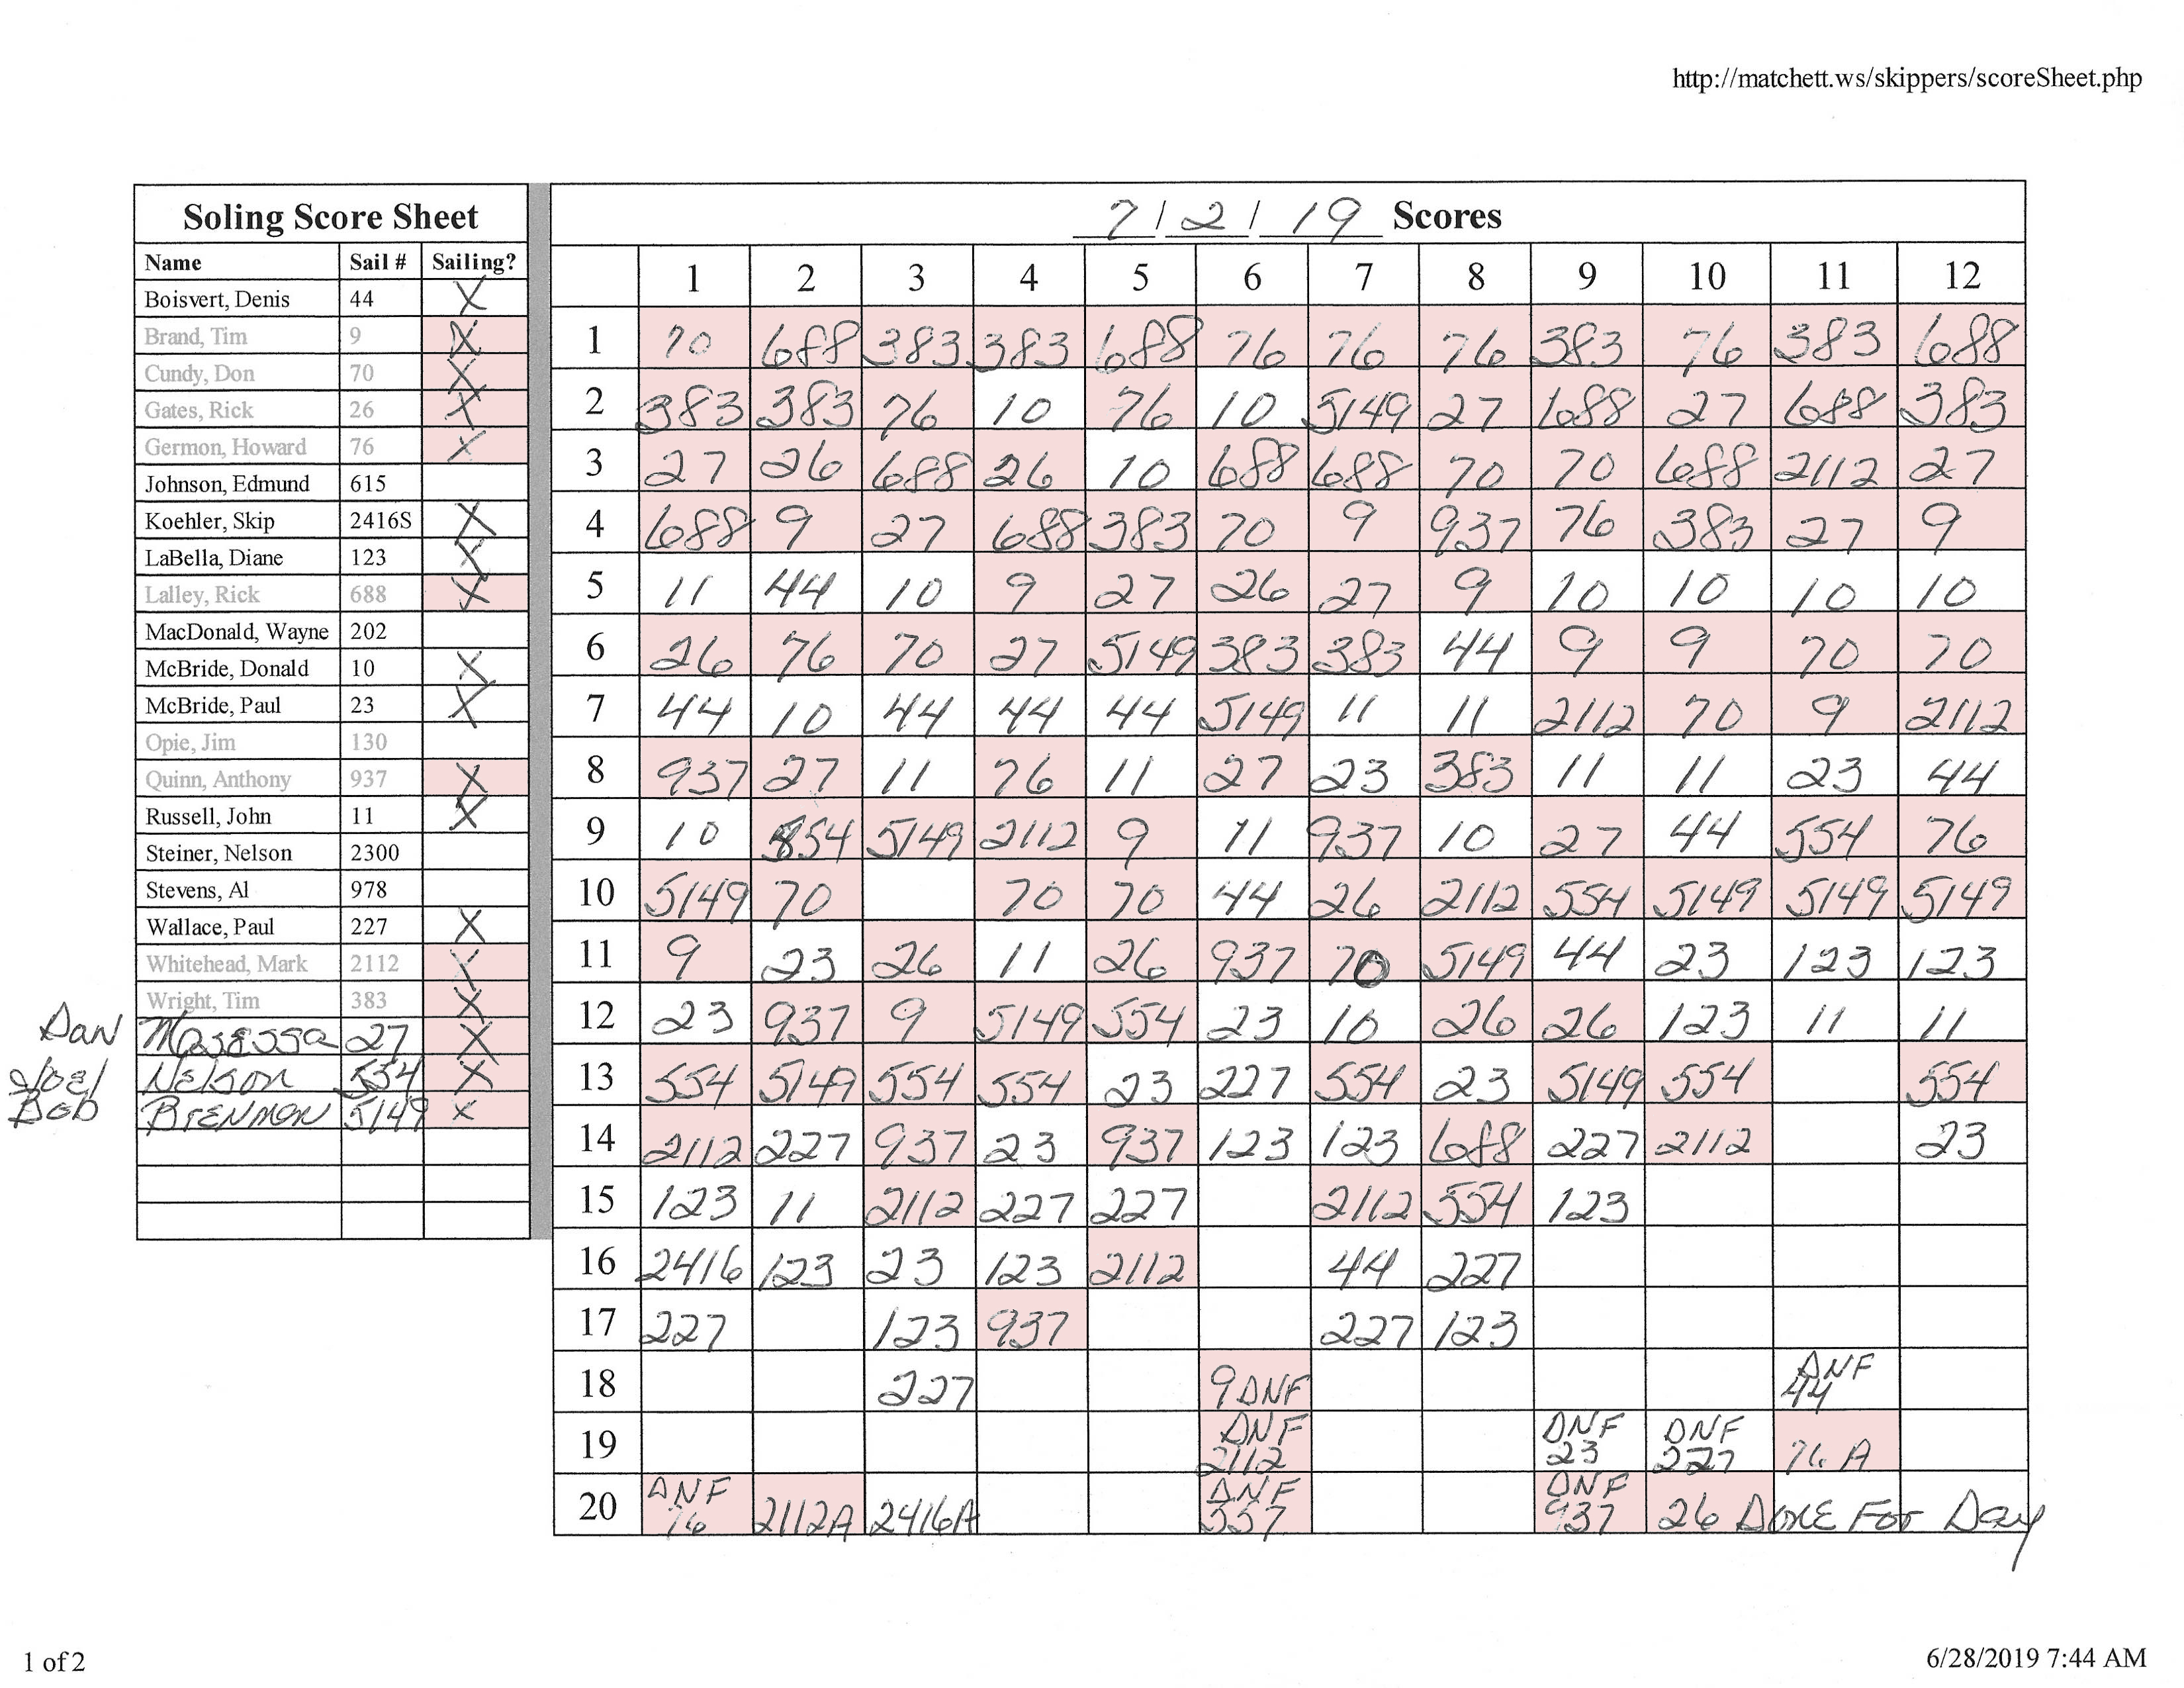 http://matchett.ws/skippers/scoreSheet.php
Soling Score Sheet
Name Sail # Sailing?
Boisvert, Denis 44 X
Brand, Tim 9 X
Cundy, Don 70 X
Gates, Rick 26 X
Germon, Howard 76 X
Johnson, Edmund 615
Koehler, Skip 2416S X
LaBella, Diane 123 X
Lalley, Rick 688 X
MacDonald, Wayne 202
McBride, Donald 10 X
McBride, Paul 23 X
Opie, Jim 130
Quinn, Anthony 937 X
Russell, John 11 X
Steiner, Nelson 2300
Stevens, Al 978
Wallace, Paul 227 X
Whitehead, Mark 2112 X
Wright, Tim 383 X
Dan Masessa 27 X
Joel Nelson 554 X
Bob 5149 X
7/2/19 Scores
1 2 3 4 5 6 7 8 9 10 11 12
1 70 688 383 383 688 76 76 76 383 76 383 688
2 383 383 76 10 76 10 5149 27 688 27 688 383
3 27 26 688 26 10 688 688 70 70 688 2112 27
4 688 9 27 688 383 70 9 937 76 383 27 9
5 11 44 10 9 27 26 27 9 10 10 10 10
6 26 76 70 27 5149 383 383 44 9 9 70 70
7 44 10 44 44 44 5149 11 11 2112 70 9 2112
8 937 27 11 76 11 27 23 383 11 11 23 44
9 10 554 5149 2112 9 11 937 10 27 44 554 76
10 5149 70 70 70 44 26 2112 554 5149 5149 5149
11 9 23 26 11 26 937 70 5149 44 23 123 123
12 23 937 9 5149 554 23 10 26 26 123 11 11
13 554 5149 554 554 23 227 554 23 5149 554 554
14 2112 227 937 23 937 123 123 688 227 2112 23
15 123 11 2112 227 227 2112 554 123
16 2416 123 23 123 2112 44 227
17 227 123 937 227 123
18 227 9 DNF DNF 44
19 DNF 2112 DNF 23 DNF 227 76 A
20 DNF 76 2112A 2416A DNF DNF 937 26 Done For Day
1 of 2
6/28/2019 7:44 AM